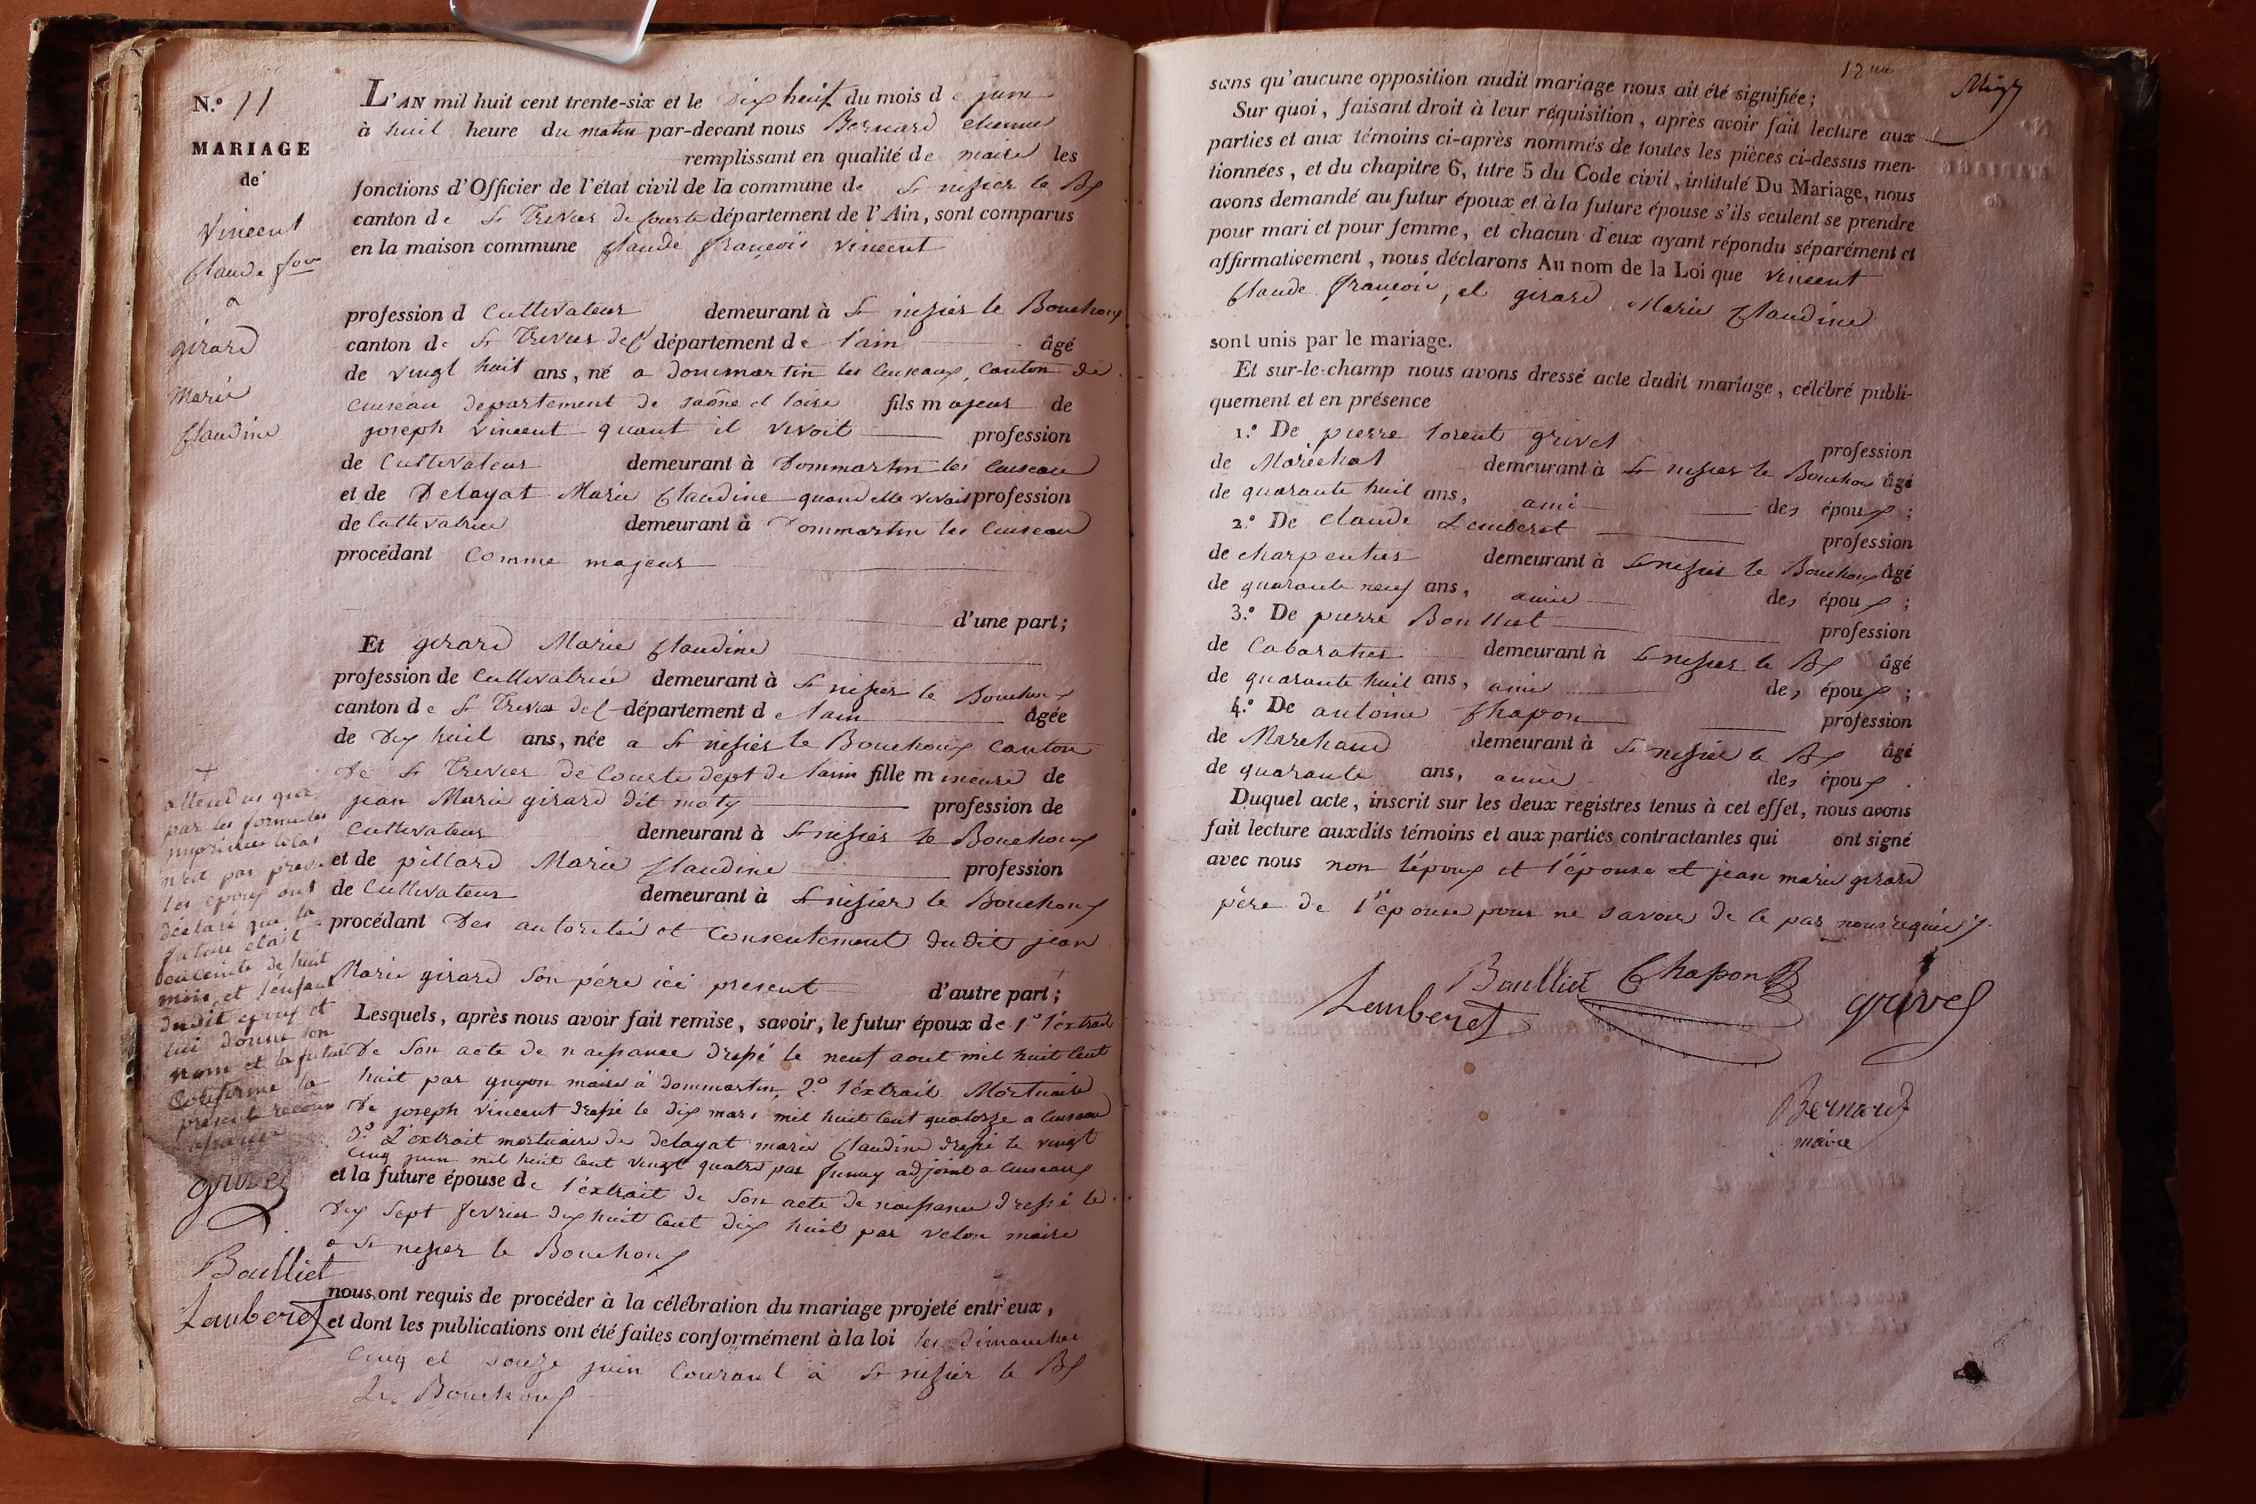 N.º 11
MARIAGE
de
Vincent
Claude fois
a
girard
Marie
Claudine
L'AN mil huit cent trente-six et le Dix huit du mois de juin
à huit heure du matin par-devant nous Bernard Etienne
remplissant en qualité de maire les
fonctions d'Officier de l'état civil de la commune de St nisier le Bx
canton de St Trivier de Courte département de l'Ain, sont comparus
en la maison commune Claude françois Vincent
profession d Cultivateur demeurant à St nizier le Bouchoux
canton de St Trivier de Ct département de l'ain âgé
de vingt huit ans, né a dommartin les Cuiseaux, Canton de
Cuiseau departement de saône et loire fils majeur de
joseph Vincent quant il vivoit profession
de Cultivateur demeurant à Dommartin les Cuiseau
et de Delayat Marie Claudine quand elle vivait profession
de Cultivatrice demeurant à Dommartin les Cuiseau
procédant Comme majeur
d'une part;
Et girard Marie Claudine
profession de Cultivatrice demeurant à St nizier le Bouchoux
canton de St Trivier de Ct département de l'ain âgée
de Dix huit ans, née a St nisier le Bouchoux Canton
De St Trivier de Courte dept de l'ain fille mineure de
jean Marie girard dit maty profession de
Cultivateur demeurant à St nisier le Bouchoux
et de pillard Marie Claudine profession
de Cultivateur demeurant à St nisier le Bouchoux
procédant Des autorités et Consentement dudit jean
Marie girard son père ici present d'autre part;
+
attendus que
par les formules
imprimées
n'est pas
les epoux ont
déclaré que la
future était
enceinte de huit
mois, et l'enfant
dudit epoux et
lui donne son
nom et la future
Confirme la
presente
grivel
Boulliet
Lamberet
Lesquels, après nous avoir fait remise, savoir, le futur époux de 1º l'éxtrait
De son acte de naissance dressé le neuf aout mil huit Cent
huit par guyon maire à dommartin, 2º l'éxtrait Mortuaire
De joseph Vincent dressé le dix mars mil huit Cent quatorze a Cuiseau
3º L'extrait mortuaire de delayat marie Claudine dressé le vingt
Cinq juin mil huit Cent vingt quatre par adjoint a Cuiseaux
et la future épouse de l'éxtrait de son acte de naissance dressé le
Dix sept fevrier dix huit Cent dix huit par velon maire
a St nizier le Bouchoux
nous ont requis de procéder à la célébration du mariage projeté entr'eux,
et dont les publications ont été faites conformément à la loi les dimanches
Cinq et douze juin Courant à St nizier le Bx
Le Bouchoux
12
sans qu'aucune opposition audit mariage nous ait été signifiée;
Sur quoi, faisant droit à leur réquisition, après avoir fait lecture aux
parties et aux témoins ci-après nommés de toutes les pièces ci-dessus men-
tionnées, et du chapitre 6, titre 5 du Code civil, intitulé Du Mariage, nous
avons demandé au futur époux et à la future épouse s'ils veulent se prendre
pour mari et pour femme, et chacun d'eux ayant répondu séparément et
affirmativement, nous déclarons Au nom de la Loi que Vincent
Claude françois, et girard Marie Claudine
sont unis par le mariage.
Et sur-le-champ nous avons dressé acte dudit mariage, célébré publi-
quement et en présence
1.º De pierre lorent grivel profession
de Maréchal demeurant à St nisier le Bouchoux âgé
de quarante huit ans, ami des époux;
2.º De claude Lamberet profession
de charpentier demeurant à St nizier le Bouchoux âgé
de quarante neuf ans, amie des époux;
3.º De pierre Boulliet profession
de Cabaratier demeurant à St nisier le Bx âgé
de quarante huit ans, amie des époux;
4.º De antoine Chapon profession
de Marchand demeurant à St nisier le Bx âgé
de quarante ans, amie des époux.
Duquel acte, inscrit sur les deux registres tenus à cet effet, nous avons
fait lecture auxdits témoins et aux parties contractantes qui ont signé
avec nous non l'époux et l'épouse et jean marie girard
père de l'épouse pour ne savoir de le par nous requis.
Boulliet Chapon
Lamberet grivel
Bernard
maire